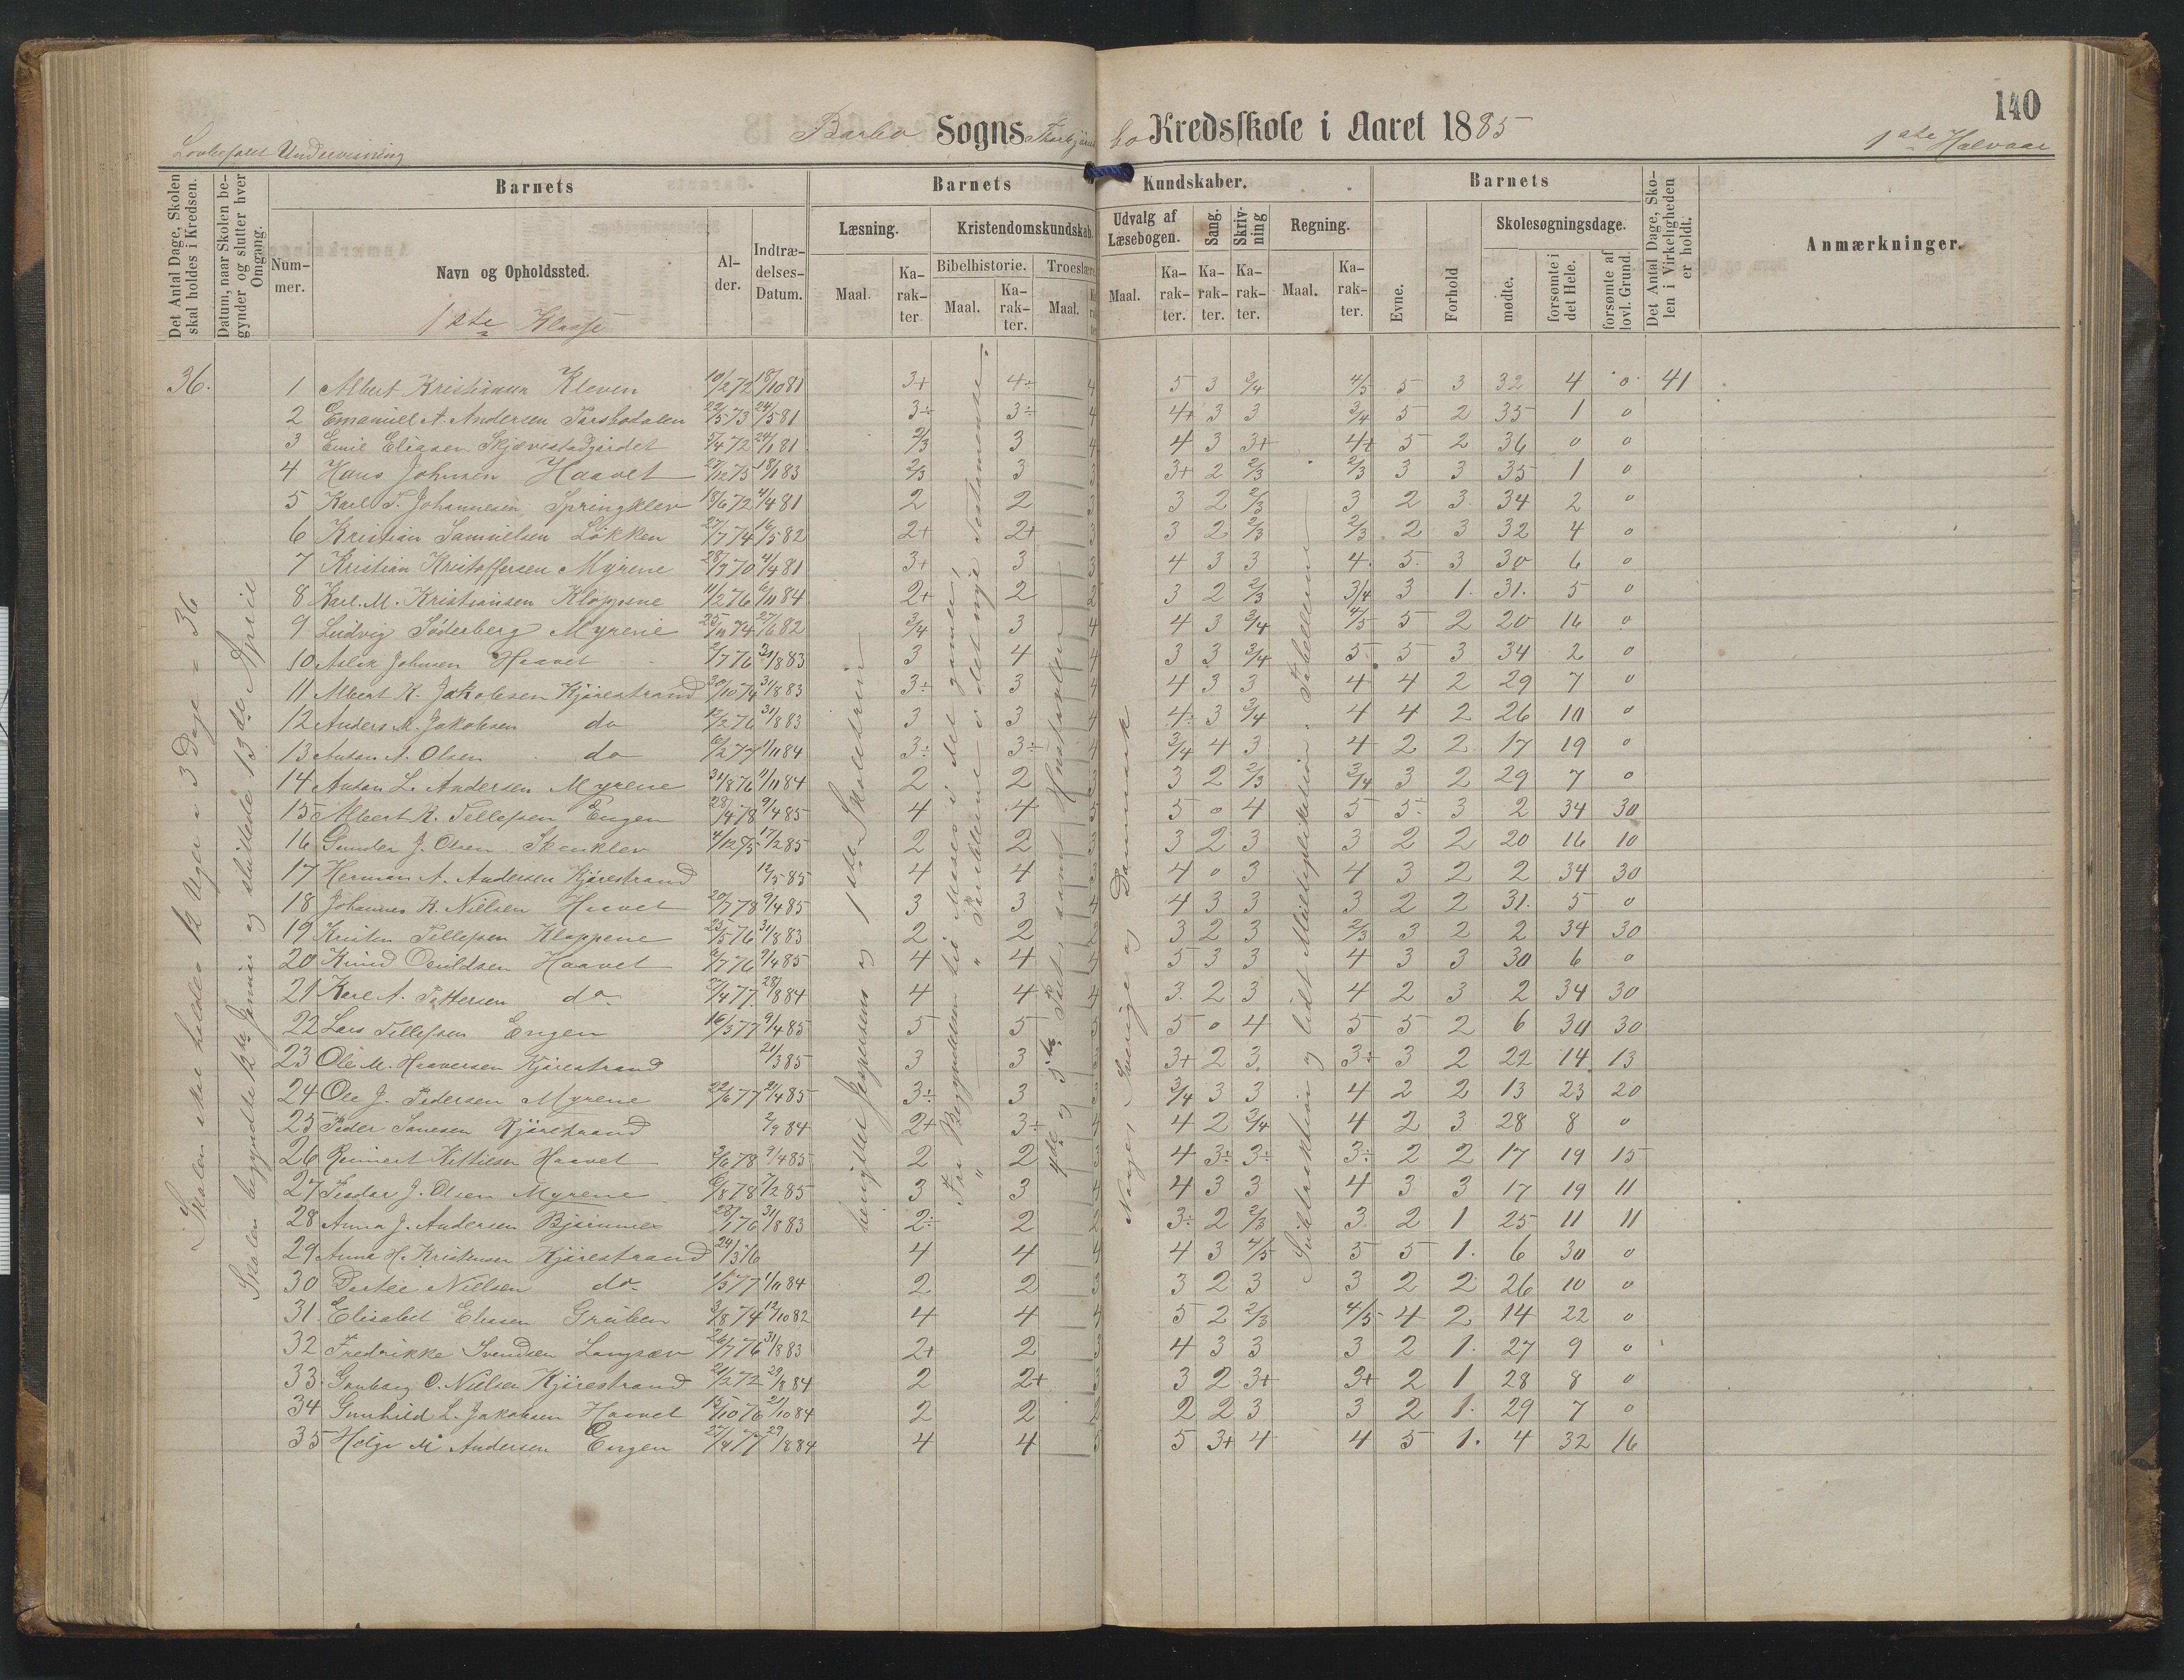 140
Barbo Sogns Thorbjörnsbo Kredsskole i Aaret 1885
1ste Halvaar
Lovbefalet Undervisning
Det Antal Dage, Skolen skal holdes i Kredsen.
Datum, naar Skolen begynder og slutter hver Omgang.
Barnets
Nummer.
Navn og Opholdssted.
1ste Klasse
Alder.
Indtrædelses-Datum.
Barnets Kundskaber.
Læsning.
Maal.
Karakter.
Kristendomskundskab.
Bibelhistorie.
Maal.
Karakter.
Troeslære.
Maal.
Udvalg af Læsebogen.
Maal.
Karakter.
Sang.
Karakter.
Skrivning
Karakter.
Regning.
Maal.
Karakter.
Barnets
Evne.
Forhold
Skolesøgningsdage.
mødte.
forsømte i det Hele.
forsømte af lovl. Grund.
Det Antal Dage, Skolen i Virkeligheden er holdt.
Anmærkninger.
36.
Skolen skal holdes 12 Uger a 3 Dage = 36
Skolen begyndte 12te Januar og sluttede 13de April
benyttet Jespersens og 1ste Skoletrin
Fra Begyndelsen til Moses i det gamle,
" " Parablerne i det nye Testamente
4de og 5te Part, samt Hustavlen
Norge, Sverige og Danmark
Subtraktion og lidt Multiplikation. Tabellerne
1 Albert Kristiansen Kleven 10/2 72 18/10 81 3+ 4÷ 4 5 3 3/4 4/5 5 3 32 4 0 41
2 Emanuel A. Andersen 22/5 73 24/5 81 3÷ 3÷ 4 4+ 3 3 3/4 5 2 35 1 0
3 Emil Eliasen Skjævestadgårdet 5/4 72 24/1 81 2/3 3 4 4 3 3+ 4+ 5 2 36 0 0
4 Hans Johnsen Haavet 27/12 73 18/1 83 2/3 3 3 3+ 2 2/3 2/3 3 3 35 1 0
5 Karl T. Johannesen Springklev 18/6 72 4/4 81 2 2 3 3 2 2/3 3 2 3 34 2 0
6 Kristian Samuelsen Løkken 27/7 74 16/5 82 2+ 2+ 3 3 2 2/3 2/3 2 3 32 4 0
7 Kristian Kristoffersen Myrene 28/9 70 4/4 81 3+ 3 3 4 3 3 4 5 3 30 6 0
8 Karl M. Kristiansen Kloppene 11/2 76 6/11 84 2+ 2 2 3 2 2/3 3/4 3 1 31 5 0
9 Ludvig Söderberg Myrene 25/11 74 27/6 82 3/4 3 4 4 3 3/4 4/5 5 2 20 16 0
10 Aslak Johnsen Haavet 2/7 76 31/8 83 3 4 4 3 3 3/4 5 5 3 34 2 0
11 Albert K. Jakobsen Kjörestrand 20/10 74 31/8 83 3÷ 3 4 4 3 3 4 4 2 29 7 0
12 Anders M. Jakobsen do 12/2 76 31/8 83 3 3 4 4÷ 3 3/4 4 4 2 26 10 0
13 Anton A. Olsen do 6/2 77 1/11 84 3÷ 3÷ 4 3/4 4 3 4 2 2 17 19 0
14 Anton L. Andersen Myrene 31/8 76 11/11 84 2 2 3 3 2 2/3 3/4 3 2 29 7 0
15 Albert R. Tellefsen Engen 28/4 78 9/4 85 4 4 5 5 0 4 5 5 3 2 34 30
16 Gunder J. Olsen Stenklev 4/12 75 17/2 85 2 2 3 3 2 3 3 2 2 20 16 10
17 Herman A. Andersen Kjörestrand 12/5 85 4 4 4 0 3 4 3 2 2 34 30
18 Johannes R. Nielsen Haavet 20/7 78 9/4 85 3 3 4 4 3 3 3 2 2 31 5 0
19 Kristen Tellefsen Kloppene 25/5 76 31/8 83 2 2 2 3 2 3 2/3 3 2 2 34 30
20 Knud Osuldsen Haavet 6/7 76 9/4 85 4 4 4 5 3 3 4 3 3 30 6 0
21 Karl A. Pettersen do 27/4 77 28/8 84 4 4 4 3 2 3 4 2 3 2 34 30
22 Lars Tellefsen Engen 16/3 77 9/4 85 5 5 5 5 0 4 5 5 2 6 30 30
23 Ole M. Haaversen Kjörestrand 21/3 85 3 3 3 3+ 2 3 3÷ 3 2 22 14 13
24 Ole J. Pedersen Myrene 22/6 77 21/4 85 3÷ 3 3 3/4 3 3 4 2 2 13 23 20
25 Peder Kjörestrand 2/9 84 2+ 3+ 4 4 2 3/4 4 2 3 28 8 0
26 Reinert Kittilsen Haavet 2/6 78 9/4 85 2 2 3 4 3÷ 3÷ 3÷ 2 2 17 19 15
27 Teodor J. Olsen Myrene 6/8 78 7/2 85 3 3 4 4 3 3 4 3 3 17 19 11
28 Anna J. Andersen 28/1 76 31/8 83 2÷ 2 2 3÷ 2 2/3 3 2 1 25 11 11
29 Anna H. Kristensen Kjörestrand 24/3 76 4 4 4 4 3 4/5 5 5 1 6 30 0
30 Dortee Nielsen do 1/5 77 1/11 84 2 2 3 3 2 3 3 2 2 26 10 0
31 Elisabet Eliasen Gruben 3/8 74 12/10 82 4 4 4 5 2 2/3 4/5 4 2 14 22 0
32 Fredrikke Svendsen Langsæv 26/7 76 31/8 83 2+ 2 3 4 3 3 3 2 1 27 9 0
33 Gunborg O. Nielsen Kjörestrand 21/2 72 29/8 84 2 2+ 3 3 2 3+ 3+ 2 1 28 8 0
34 Gunhild L. Jakobsen Haavet 15/10 76 21/10 84 2 2 2 2 2 3 3 2 1 29 7 0
35 Helga M Andersen Engen 27/4 77 29/8 84 4 4 5 5 3+ 4 4 5 1 4 32 16